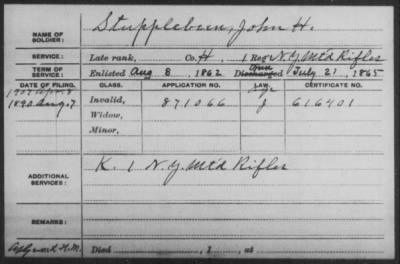 NAME OF SOLDIER: Stupplebeen, John H.
SERVICE: Late rank, Co. H, 1 Reg't N.Y. Mtd Rifles
TERM OF SERVICE: Enlisted Aug 8, 1862 Discharged July 21, 1865
DATE OF FILING. CLASS. APPLICATION NO. LAW. CERTIFICATE NO.
1890 Aug. 7 Invalid, 871066 J 616401
Widow,
Minor,
ADDITIONAL SERVICES: K. 1 N.Y. Mtd Rifles
REMARKS:
Died , 1 , at